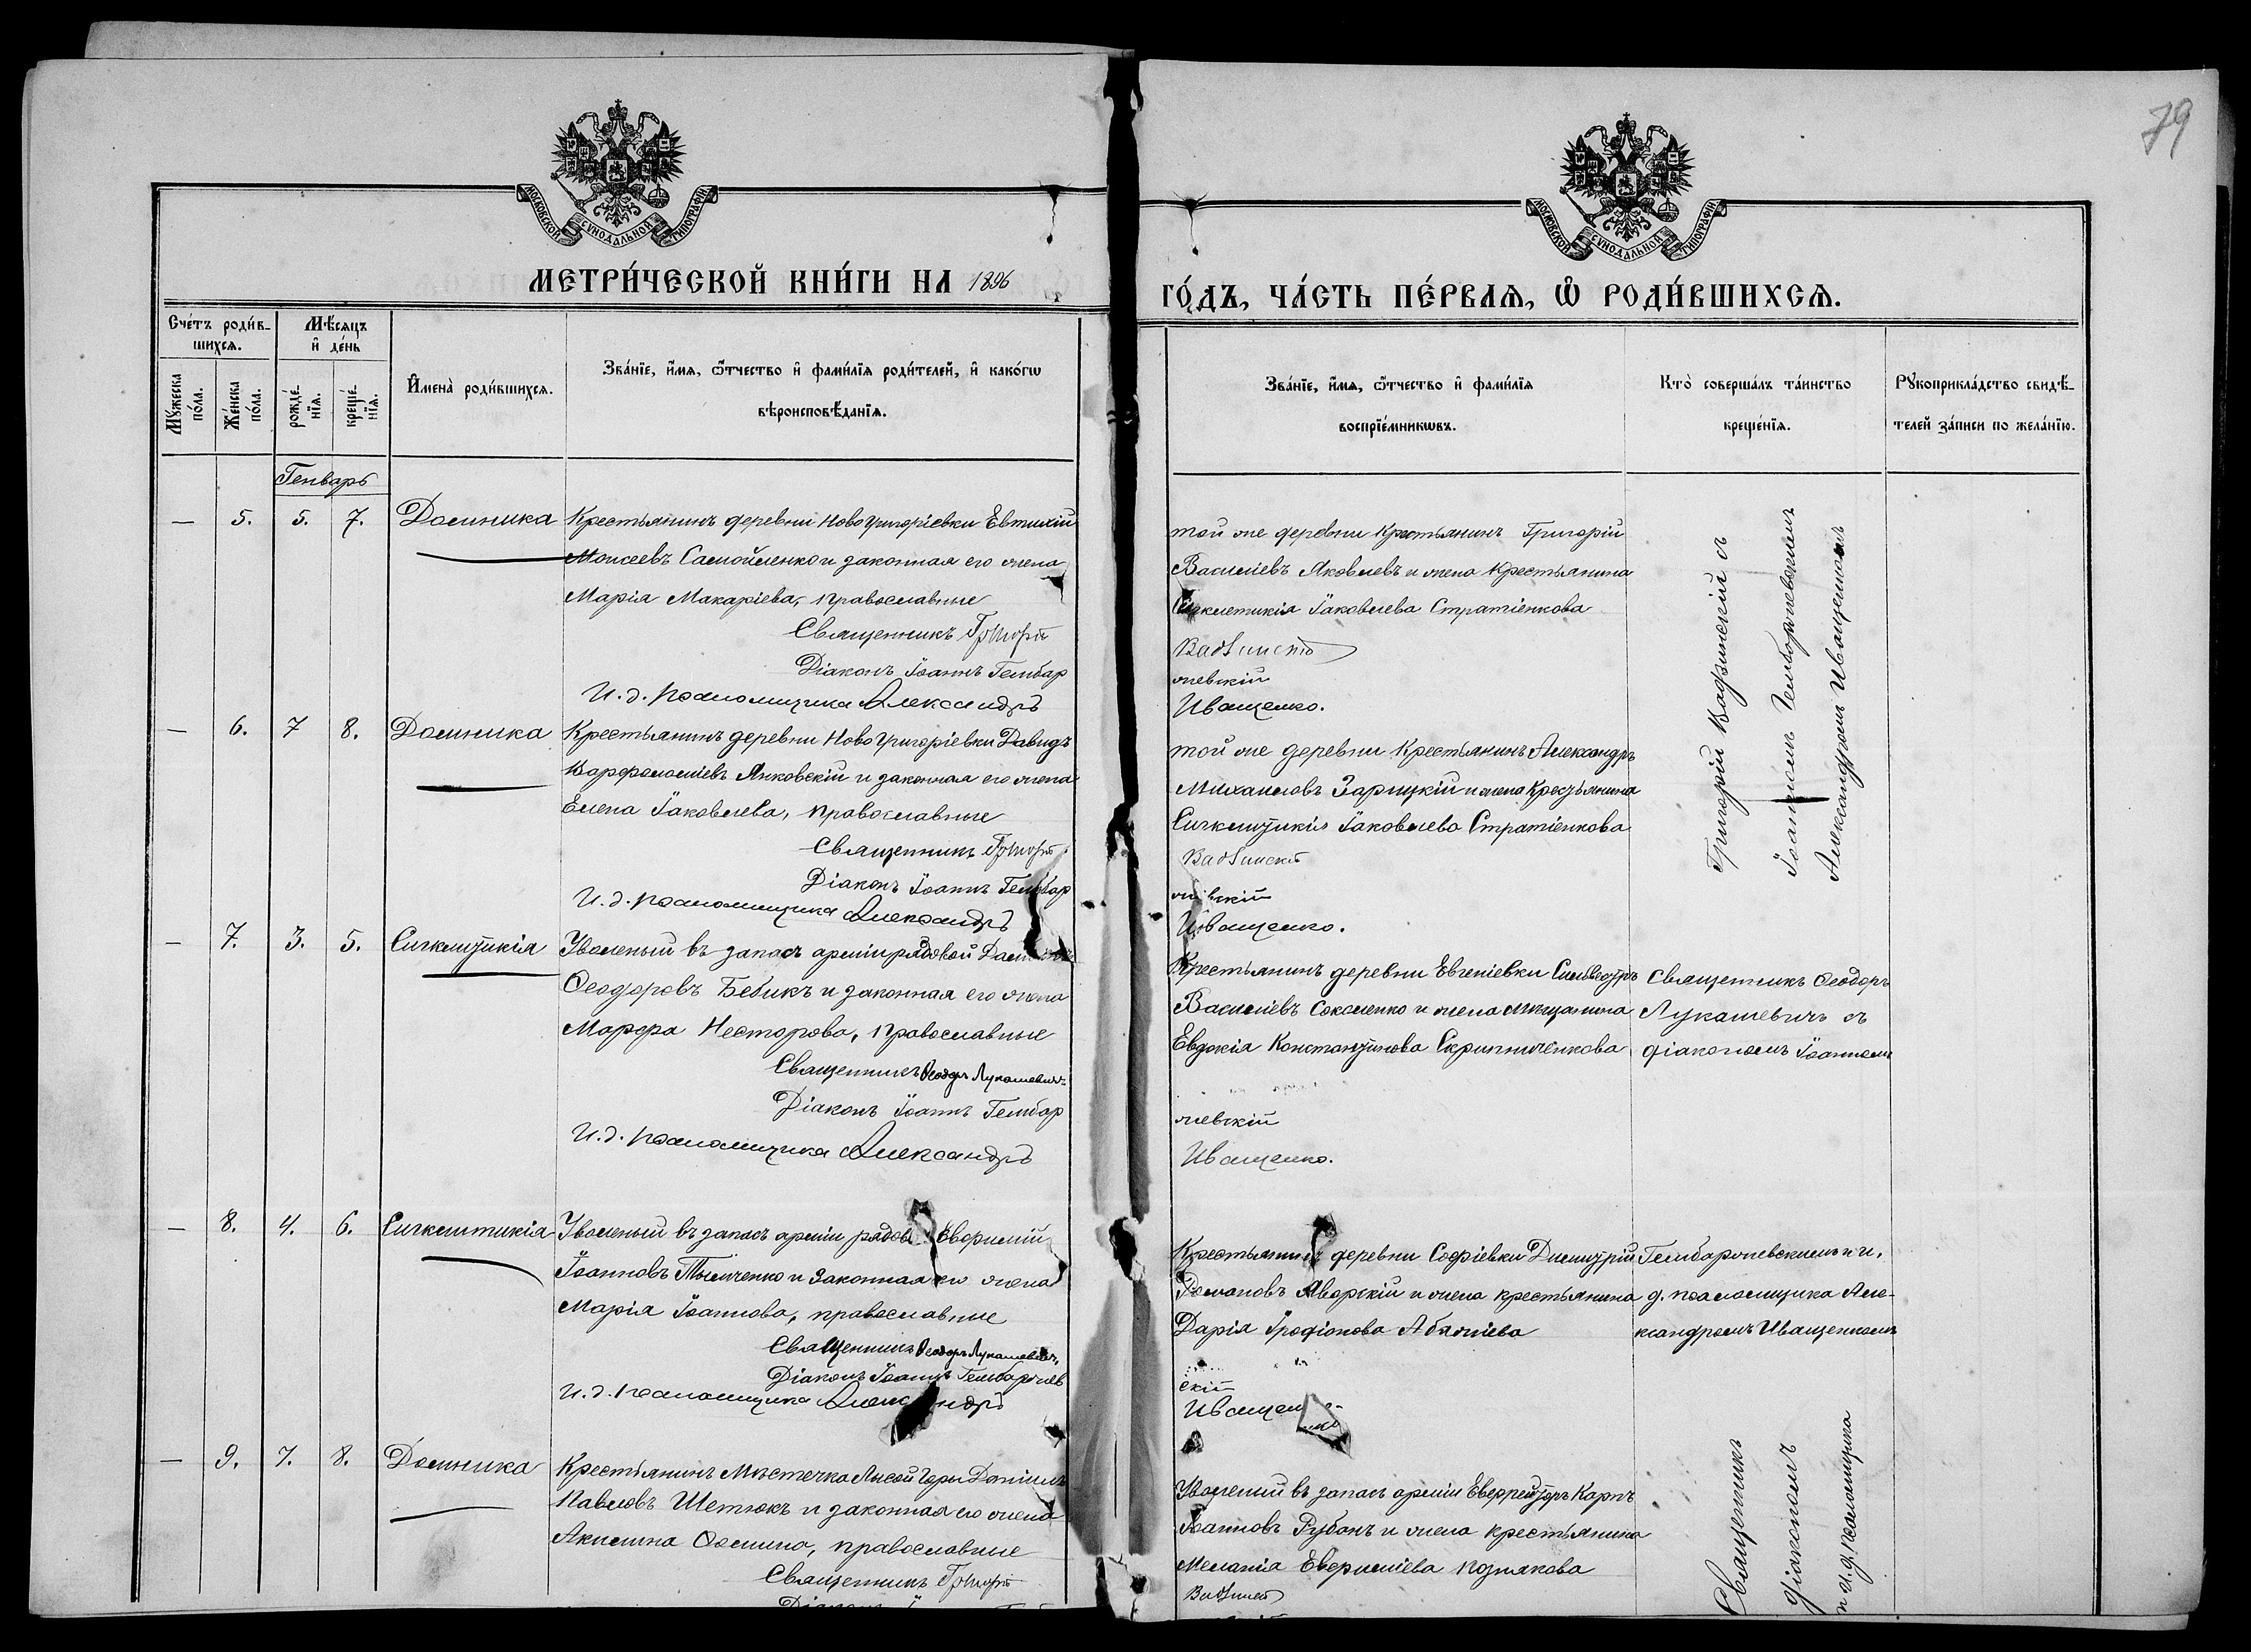 79
МОСКОВСКОЙ СѴНОДАЛЬНОЙ ТИПОГРАФІИ
МОСКОВСКОЙ СѴНОДАЛЬНОЙ ТИПОГРАФІИ
МЕТРИ́ЧЕСКОЙ КНИ́ГИ НА 1896
ГО́ДЪ, ЧА́СТЬ ПЕ́РВАѦ, Ѽ РОДИ́ВШИХСѦ.
Сче́тъ роди́в-
шихсѧ.
Мѣ́сѧцъ
и҆ де́нь
Мꙋ́жеска
по́ла.
Же́нска
по́ла.
рожде́-
нїѧ.
креще́-
нїѧ.
И҆мена̀ роди́вшихсѧ.
Зва́нїе, и҆́мѧ, ѻ҆́тчество и҆ фами́лїѧ роди́телей, и҆ како́гѡ
вѣроисповѣ́данїѧ.
Зва́нїе, и҆́мѧ, ѻ҆́тчество и҆ фами́лїѧ
воспрїе́мникѡвъ.
Кто̀ соверша́лъ та́инство
креще́нїѧ.
Рꙋкоприкла́дство свидѣ́-
телей за́писи по жела́нїю.
Генварь
— 5. 5. 7. Домника
Крестьянинъ деревни Ново Григоріевки Евтихій
Моисеевъ Самойленко и законная его жена
Марія Макаріева, православные
Священникъ Григорій
Діаконъ Іоаннъ Гембар
И. д. псаломщика Александръ
той же деревни крестьянинъ Григорій
Василіевъ Яковлевъ и жена крестьянина
Сигклитикія Іаковлева Стратіенкова
жевскій
Иващенко.
— 6. 7 8. Домника
Крестьянинъ деревни Ново Григоріевки Давидъ
Варфоломіевъ Янковскій и законная его жена
Елена Іаковлева, православные
Священникъ Григорій
Діаконъ Іоаннъ Гембар
И. д. псаломщика Александръ
той же деревни крестьянинъ Александръ
Михаиловъ Зарицкій и жена крестьянина
Сигклитикія Іаковлева Стратіенкова
жевскій
Иващенко.
Григорій с
Іоанномъ Гембаржевскимъ
Александромъ Иващенкомъ
— 7. 3. 5. Сигклитикія
Уволеный въ запасъ арміи рядовой
Ѳеодоровъ Бебикъ и законная его жена
Марфа Несторова, православные
Священникъ Ѳеодоръ Лукашевичъ
Діаконъ Іоаннъ Гембар
И. д. псаломщика Александръ
Крестьянинъ деревни Евгеніевки Сильвестръ
Василіевъ Соколенко и жена мѣщанина
Евдокія Константинова Скрипниченкова
жевскій
Иващенко.
Священникъ Ѳеодоръ
Лукашевичъ съ
діакономъ Іоанномъ
— 8. 4. 6. Сигклитикія
Уволеный въ запасъ арміи рядовой Евфимій
Іоанновъ Тымченко и законная его жена
Марія Іоаннова, православные
Священникъ Ѳеодоръ Лукашевичъ,
Діаконъ Іоаннъ Гембаржев
И. д. псаломщика Александръ
Крестьянинъ деревни Софіевки Димитрій
Романовъ Яворскій и жена крестьянина
Дарія Іродіонова
скій
Иващенко
Гембаржевскимъ и и.
д. псаломщика Але-
ксандромъ Иващенкомъ
— 9. 7. 8. Домника
Крестьянинъ Мѣстечка Лысой Горы Даніилъ
Павловъ Шетюкъ и законная его жена
Акилина Ѳомина, православные
Священникъ Григорій
Уволеный въ запасъ арміи Ефрейторъ Карпъ
Іоанновъ Рубанъ и жена крестьянина
Меланія Евфиміева Познякова
Священникъ
діакономъ
и и. д. псаломщика